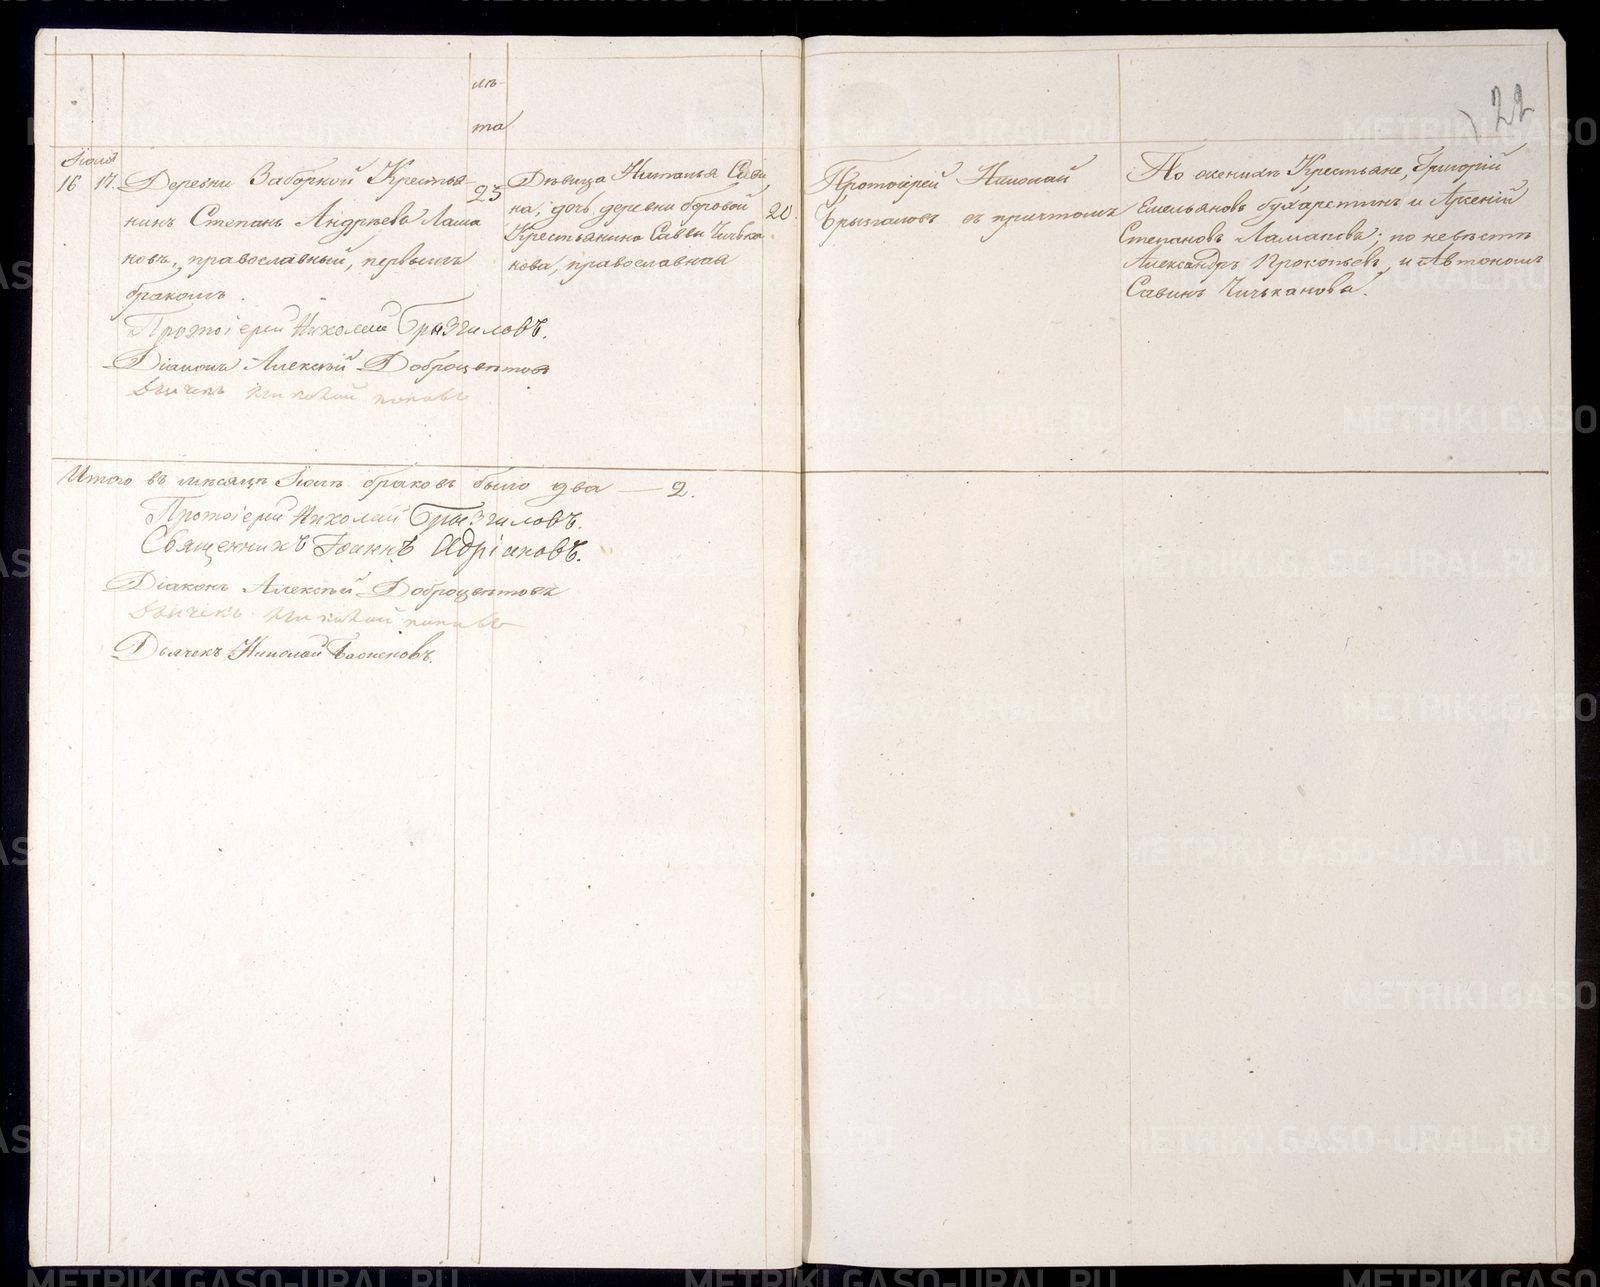 лѣ-
та
22
Іюля
16 17. Деревни Заборской Крестья-
нинъ Степанъ Андреевъ Лама
новъ, православный, первымъ
бракомъ.
25
Дѣвица Наталья Сави
на, дочь деревни боровой
Крестьянина Саввы Чилька
нова, православная
20.
Протоіерей Николай
Брызгаловъ съ причтомъ
По женихѣ Крестьяне, Григорій
Емельяновъ бухарстинъ и Арсеній
Степановъ Ламановъ; по невѣстѣ
Александръ Прокопьевъ, и Автономъ
Савинъ Чилькановы.
Протоіерей Николай Брызгаловъ.
Діаконъ Алексѣй Доброцвѣтовъ
Дьячекъ Николай поповъ
Итого въ мѣсяцѣ Іюлѣ браковъ было два — 2.
Протоіерей Николай Брызгаловъ.
Священникъ Іоаннъ Адріановъ.
Діаконъ Алексѣй Доброцвѣтовъ
Дьячекъ Николай поповъ
Дьячекъ Николай
METRIKI.GASO-URAL.RU